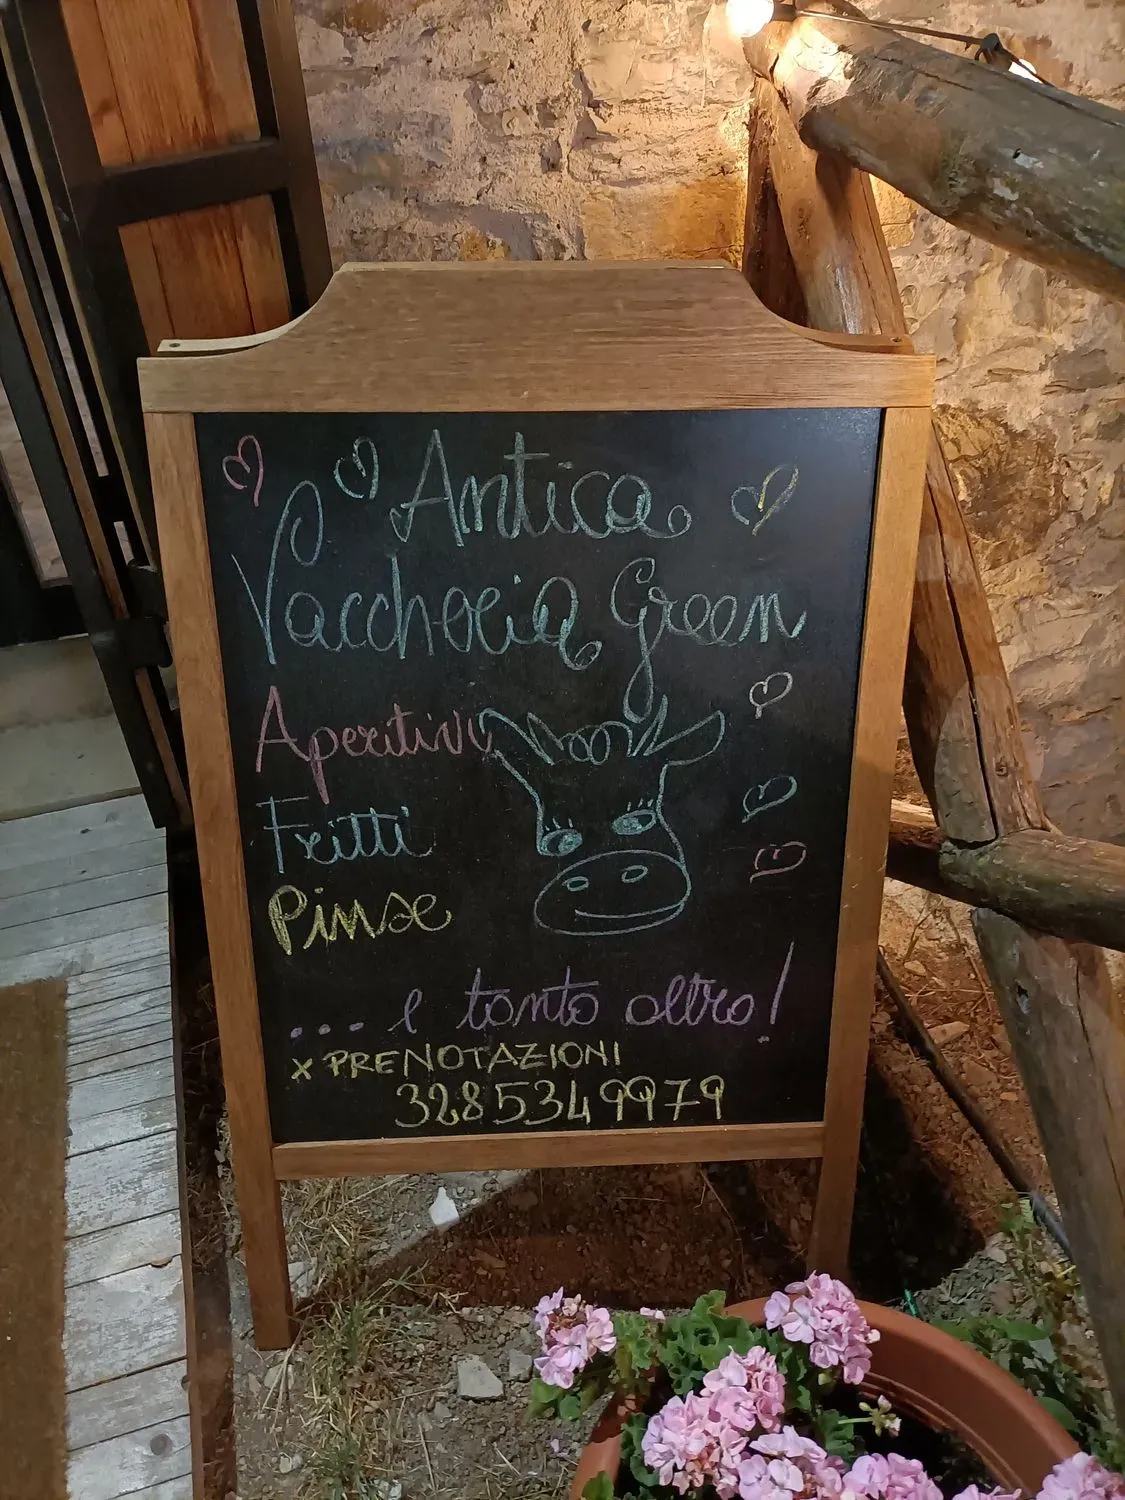 Antica
Vaccheria Green
Aperitivi
Fritti
Pinse
... e tanto altro!
x PRENOTAZIONI
3285349979